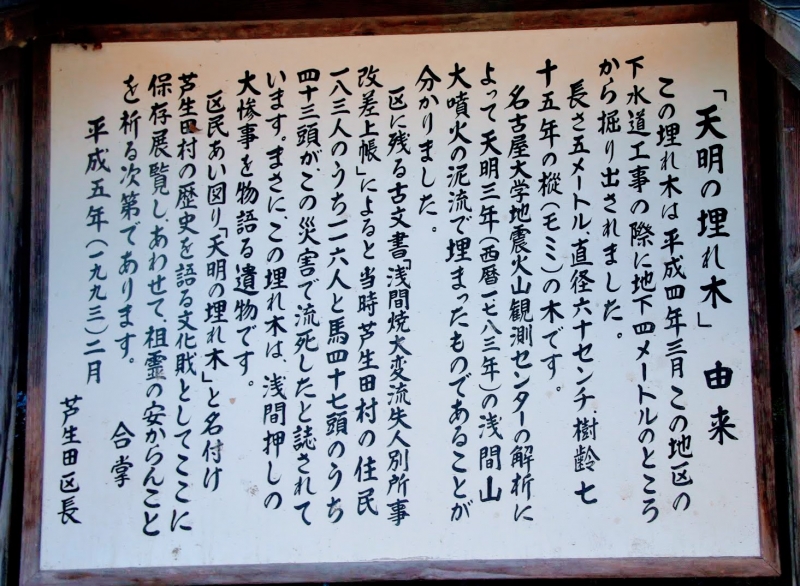 「天明の埋れ木」 由来
この埋れ木は平成四年三月この地区の
下水道工事の際に地下四メートルのところ
から掘り出されました。
長さ五メートル、直径六十センチ、樹齢七
十五年の樅(モミ)の木です。
名古屋大学地震火山観測センターの解析に
よって天明三年(西暦一七八三年)の浅間山
大噴火の泥流で埋まったものであることが
分かりました。
区に残る古文書「浅間焼大変流失人別所事
改差上帳」によると当時芦生田村の住民
一八三人のうち一一六人と馬四十七頭のうち
四十三頭が、この災害で流死したと誌されて
います。まさに、この埋れ木は、浅間押しの
大惨事を物語る遺物です。
区民あい図り「天明の埋れ木」と名付け
芦生田村の歴史を語る文化財としてここに
保存展覧し、あわせて、祖霊の安からんこと
を祈る次第であります。 合掌
平成五年(一九九三)二月
芦生田区長